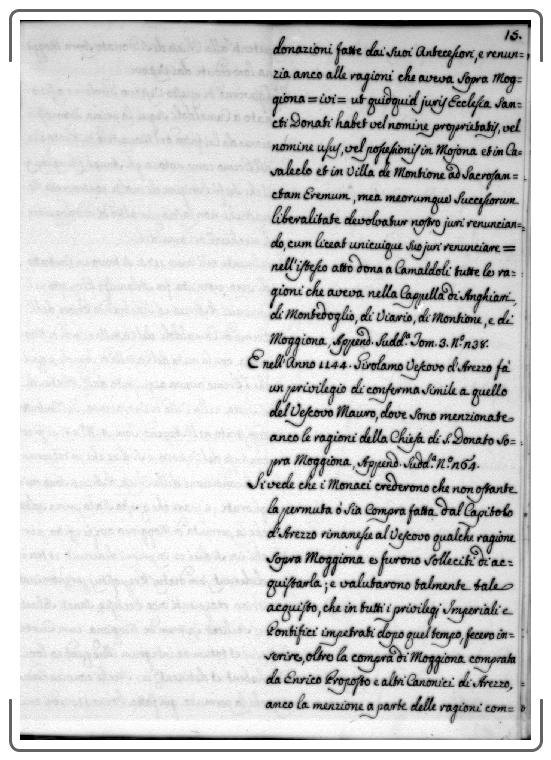 15.
donazioni fatte dai Suoi Antecessori, e renun-
zia anco alle ragioni che aveva sopra Mog-
giona = ivi = ut quidquid juris Ecclesia San-
cti Donati habet vel nomine proprietatis, vel
nomine usus, vel possessionis in Mojona et in Ca-
saleclo et in Villa de Montione ad Sacrosan-
ctam Eremum, mea meorumque Successorum
liberalitate devolvatur nostro juri renuncian-
do, cum liceat unicuique suo juri renunciare =
nell'istesso atto dona a Camaldoli tutte le ra-
gioni che aveva nella Cappella di Anghiari,
di Montedoglio, di Viario, di Montione, e di
Moggiona, Append. Sudd.ª Tom. 3. N.º n38.
E nell'Anno 1144. Girolamo Vescovo d'Arezzo fà
un privilegio di conferma simile a quello
del Vescovo Mauro, dove sono menzionate
anco le ragioni della Chiesa di S. Donato so-
pra Moggiona, Append. Sudd.ª N.º n64.
Si vede che i Monaci crederono che non ostante
la permuta ò sia Compra fatta dal Capitolo
d'Arezzo rimanesse al Vescovo qualche ragione
sopra Moggiona e furono solleciti di ac-
quistarla; e valutarono talmente tale
acquisto, che in tutti i privilegj Imperiali e
Pontificj impetrati dopo quel tempo, fecero in-
serire, oltre la compra di Moggiona comprata
da Enrico Proposto e altri Canonici di Arezzo,
anco la menzione a parte delle ragioni com-